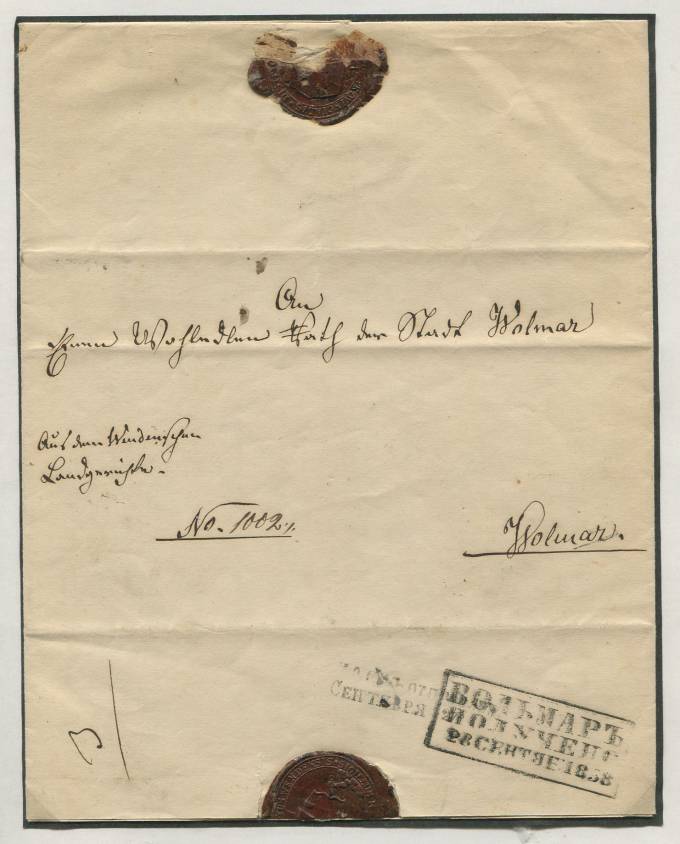 An
Einen Wohledlen Rath der Stadt Wolmar
Aus dem Wendenschen
Landgerichte.
No. 1002.
Wolmar.
3
СЕНТЯБРЯ
ВОЛЬМАРЪ
ПОЛУЧЕНО
СЕНТЯБ 1838